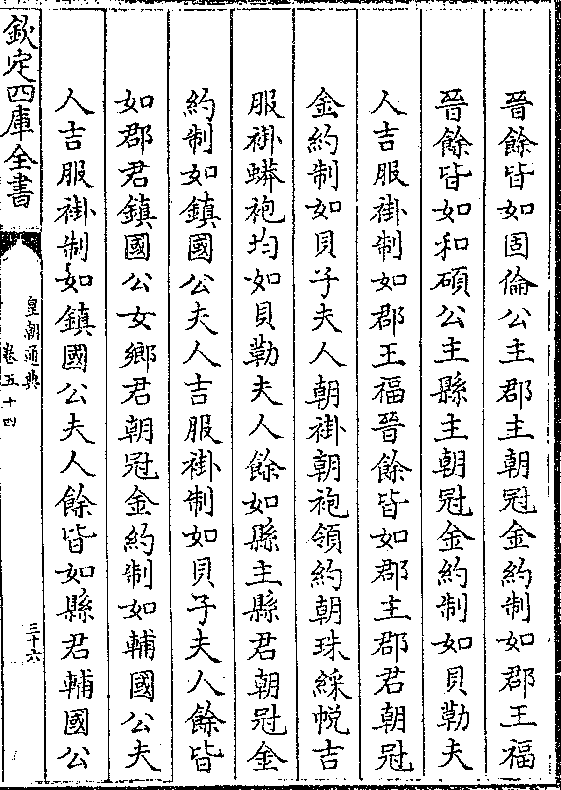 晉餘皆如固倫公主郡主朝冠金約制如郡王福
晉餘皆如和碩公主縣主朝冠金約制如貝勒夫
人吉服褂制如郡王福晉餘皆如郡主郡君朝冠
金約制如貝子夫人朝褂朝袍領約朝珠綵帨吉
服褂蟒袍均如貝勒夫人餘如縣主縣君朝冠金
約制如鎮國公夫人吉服褂制如貝子夫人餘皆
如郡君鎮國公女鄉君朝冠金約制如輔國公夫
人吉服褂制如鎮國公夫人餘皆如縣君輔國公
欽定四庫全書
皇朝通典
卷五十四
三十六